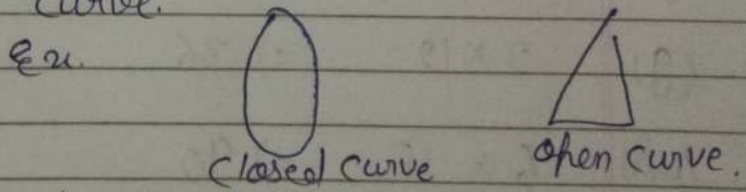 curve.
Ex.
Closed curve open curve.